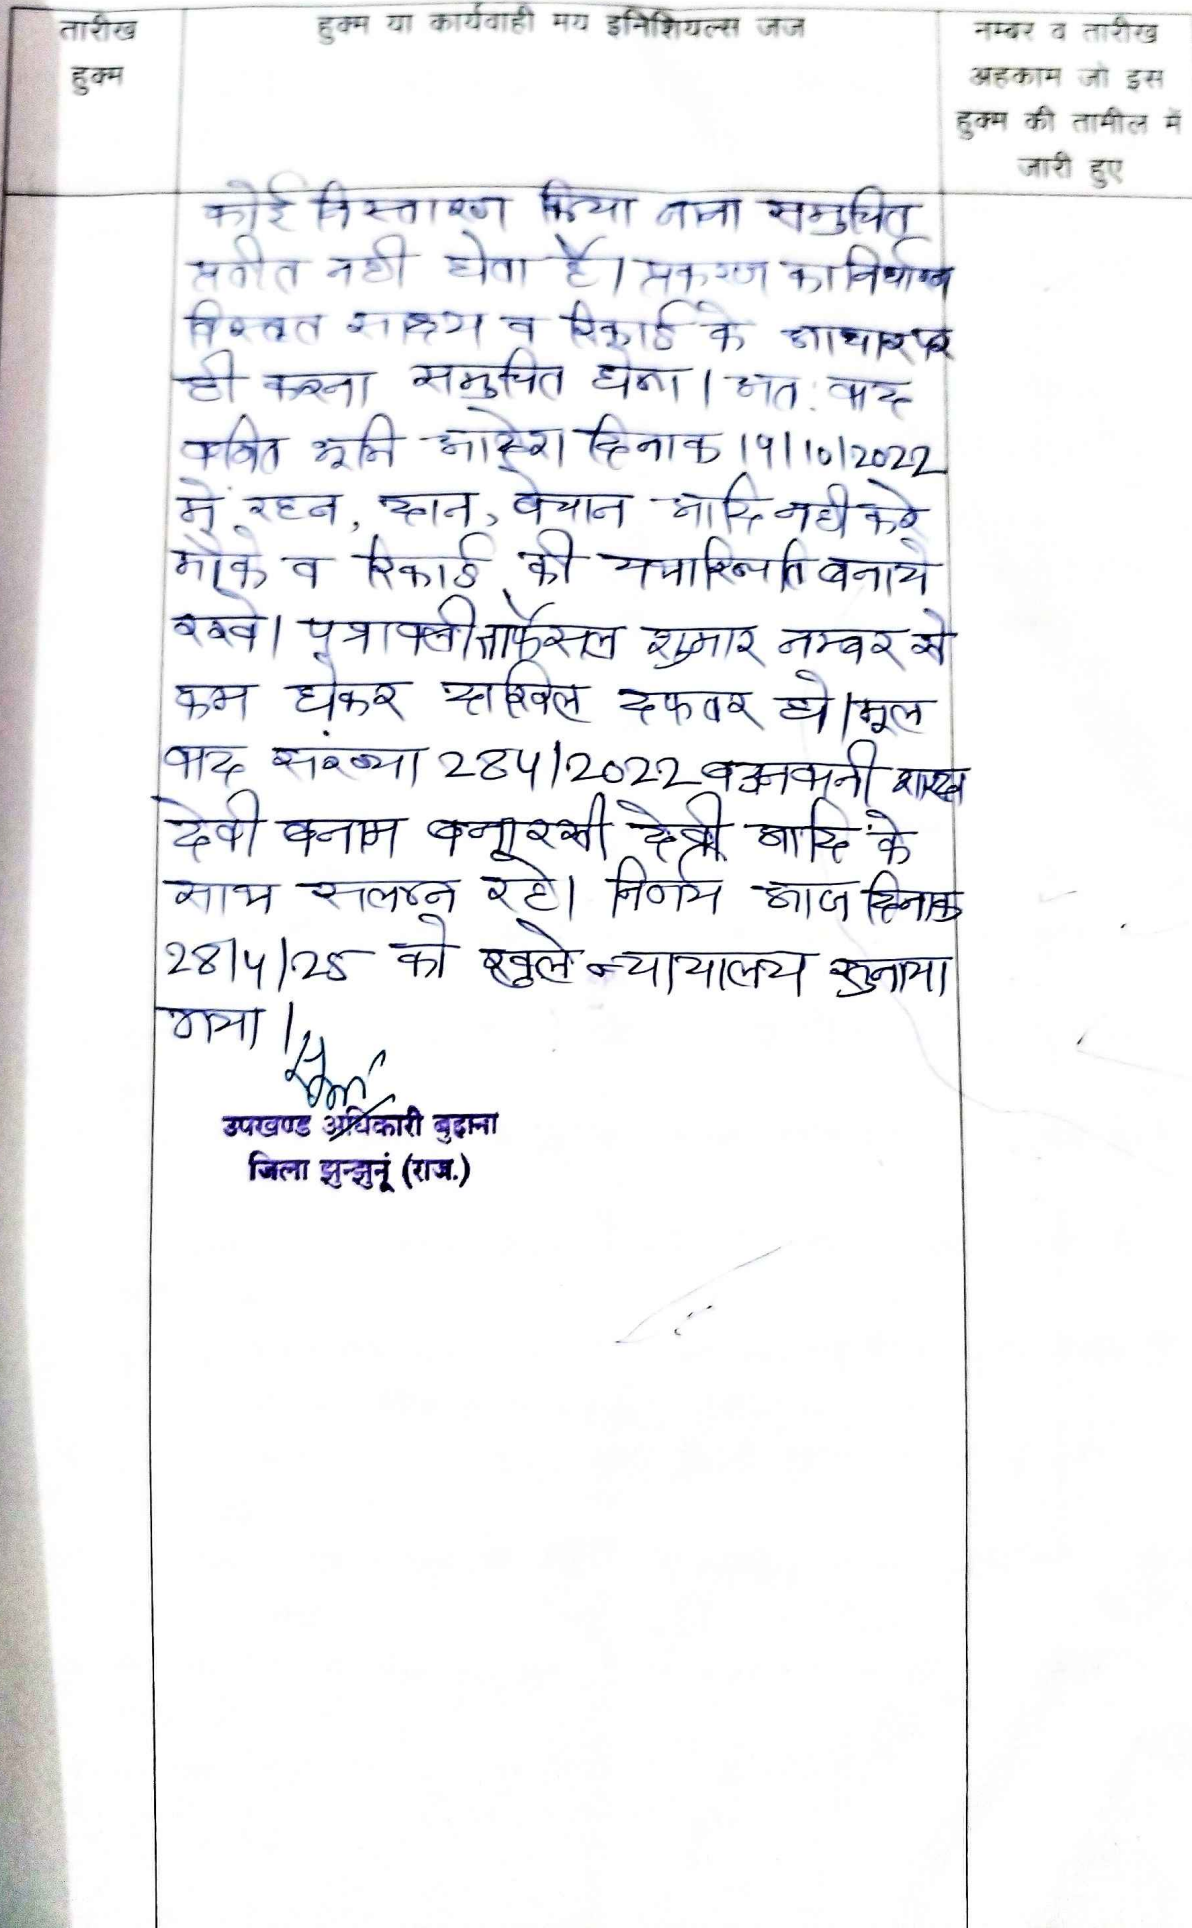 तारीख
हुक्म
हुक्म या कार्यवाही मय इनिशियल्स जज
नम्बर व तारीख
अहकाम जो इस
हुक्म की तामील में
जारी हुए
कोई निस्तारण किया जाना समुचित
प्रतीत नही होता है। प्रकरण का निर्धारण
विस्तृत साक्ष्य व रिकार्ड के आधार पर
ही करना समुचित होगा। अत: वाद
कथित भूमि आदेश दिनाक 19/10/2022
में रहन, दान, बेचान आदि नही करे
मौके व रिकार्ड की यथास्थिति बनाये
रखे। पत्रावली फैसल शुमार नम्बर से
कम होकर दाखिल दफतर हो। मूल
वाद संख्या 284/2022 बउनवानी शारदा
देवी बनाम बनारसी देवी आदि के
साथ सलग्न रहे। निर्णय आज दिनाक
28/4/25 को खुले न्यायालय सुनाया
गया।
उपखण्ड अधिकारी बुहाना
जिला झुन्झुनूं (राज.)